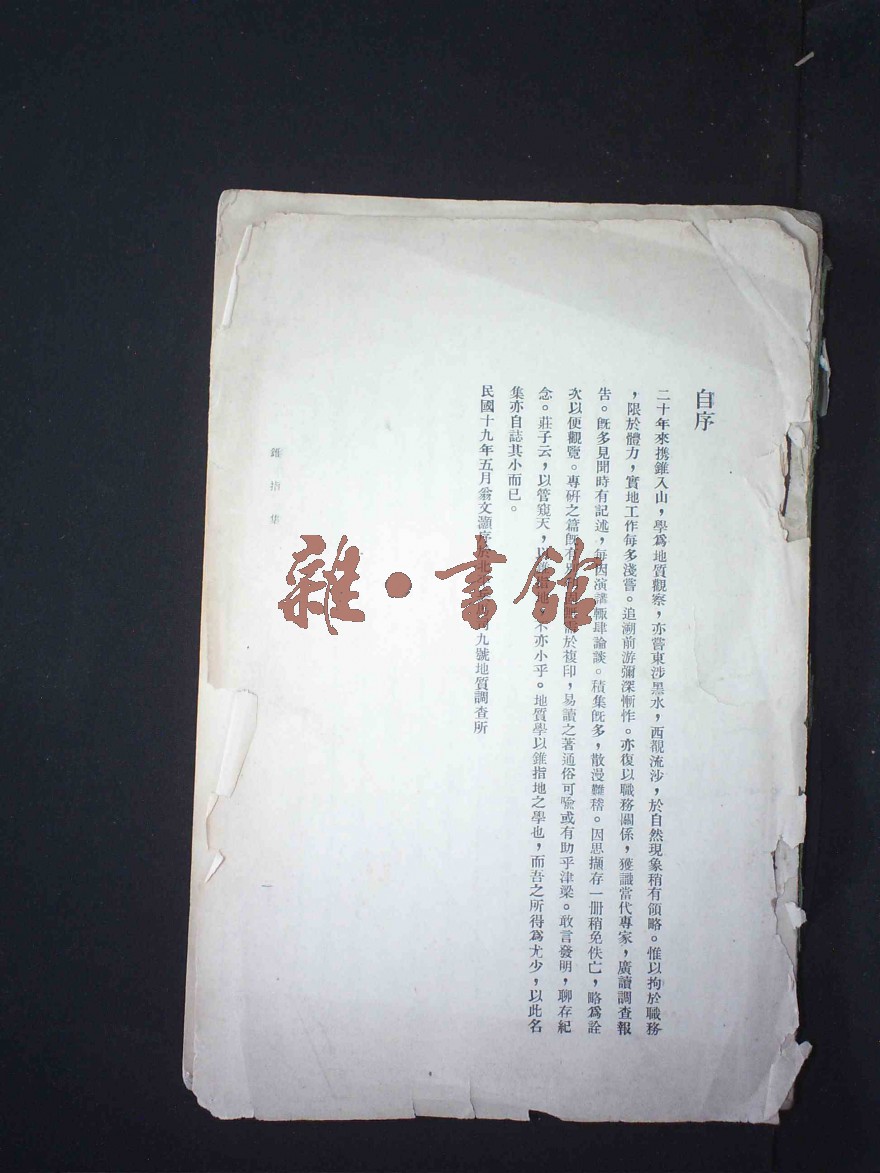 自序
二十年來携錐入山,學爲地質觀察,亦嘗東涉黑水,西覩流沙,於自然現象稍有領略。惟以拘於職務
,限於體力,實地工作每多淺嘗。追溯前游彌深慚怍。亦復以職務關係,獲識當代專家,廣讀調查報
告。旣多見聞時有記述,每因演講輒肆論談。積集旣多,散漫難稽。因思擷存一册稍免佚亡,略爲詮
次以便觀覽。專研之篇旣有於複印,易讀之著通俗可喩或有助乎津梁。敢言發明,聊存紀
念。莊子云,以管窺天,以錐指地,不亦小乎。地質學以錐指地之學也,而吾之所得爲尤少,以此名
集亦自誌其小而已。
民國十九年五月翁文灝序於北九號地質調查所
錐指集
一
雜·書館